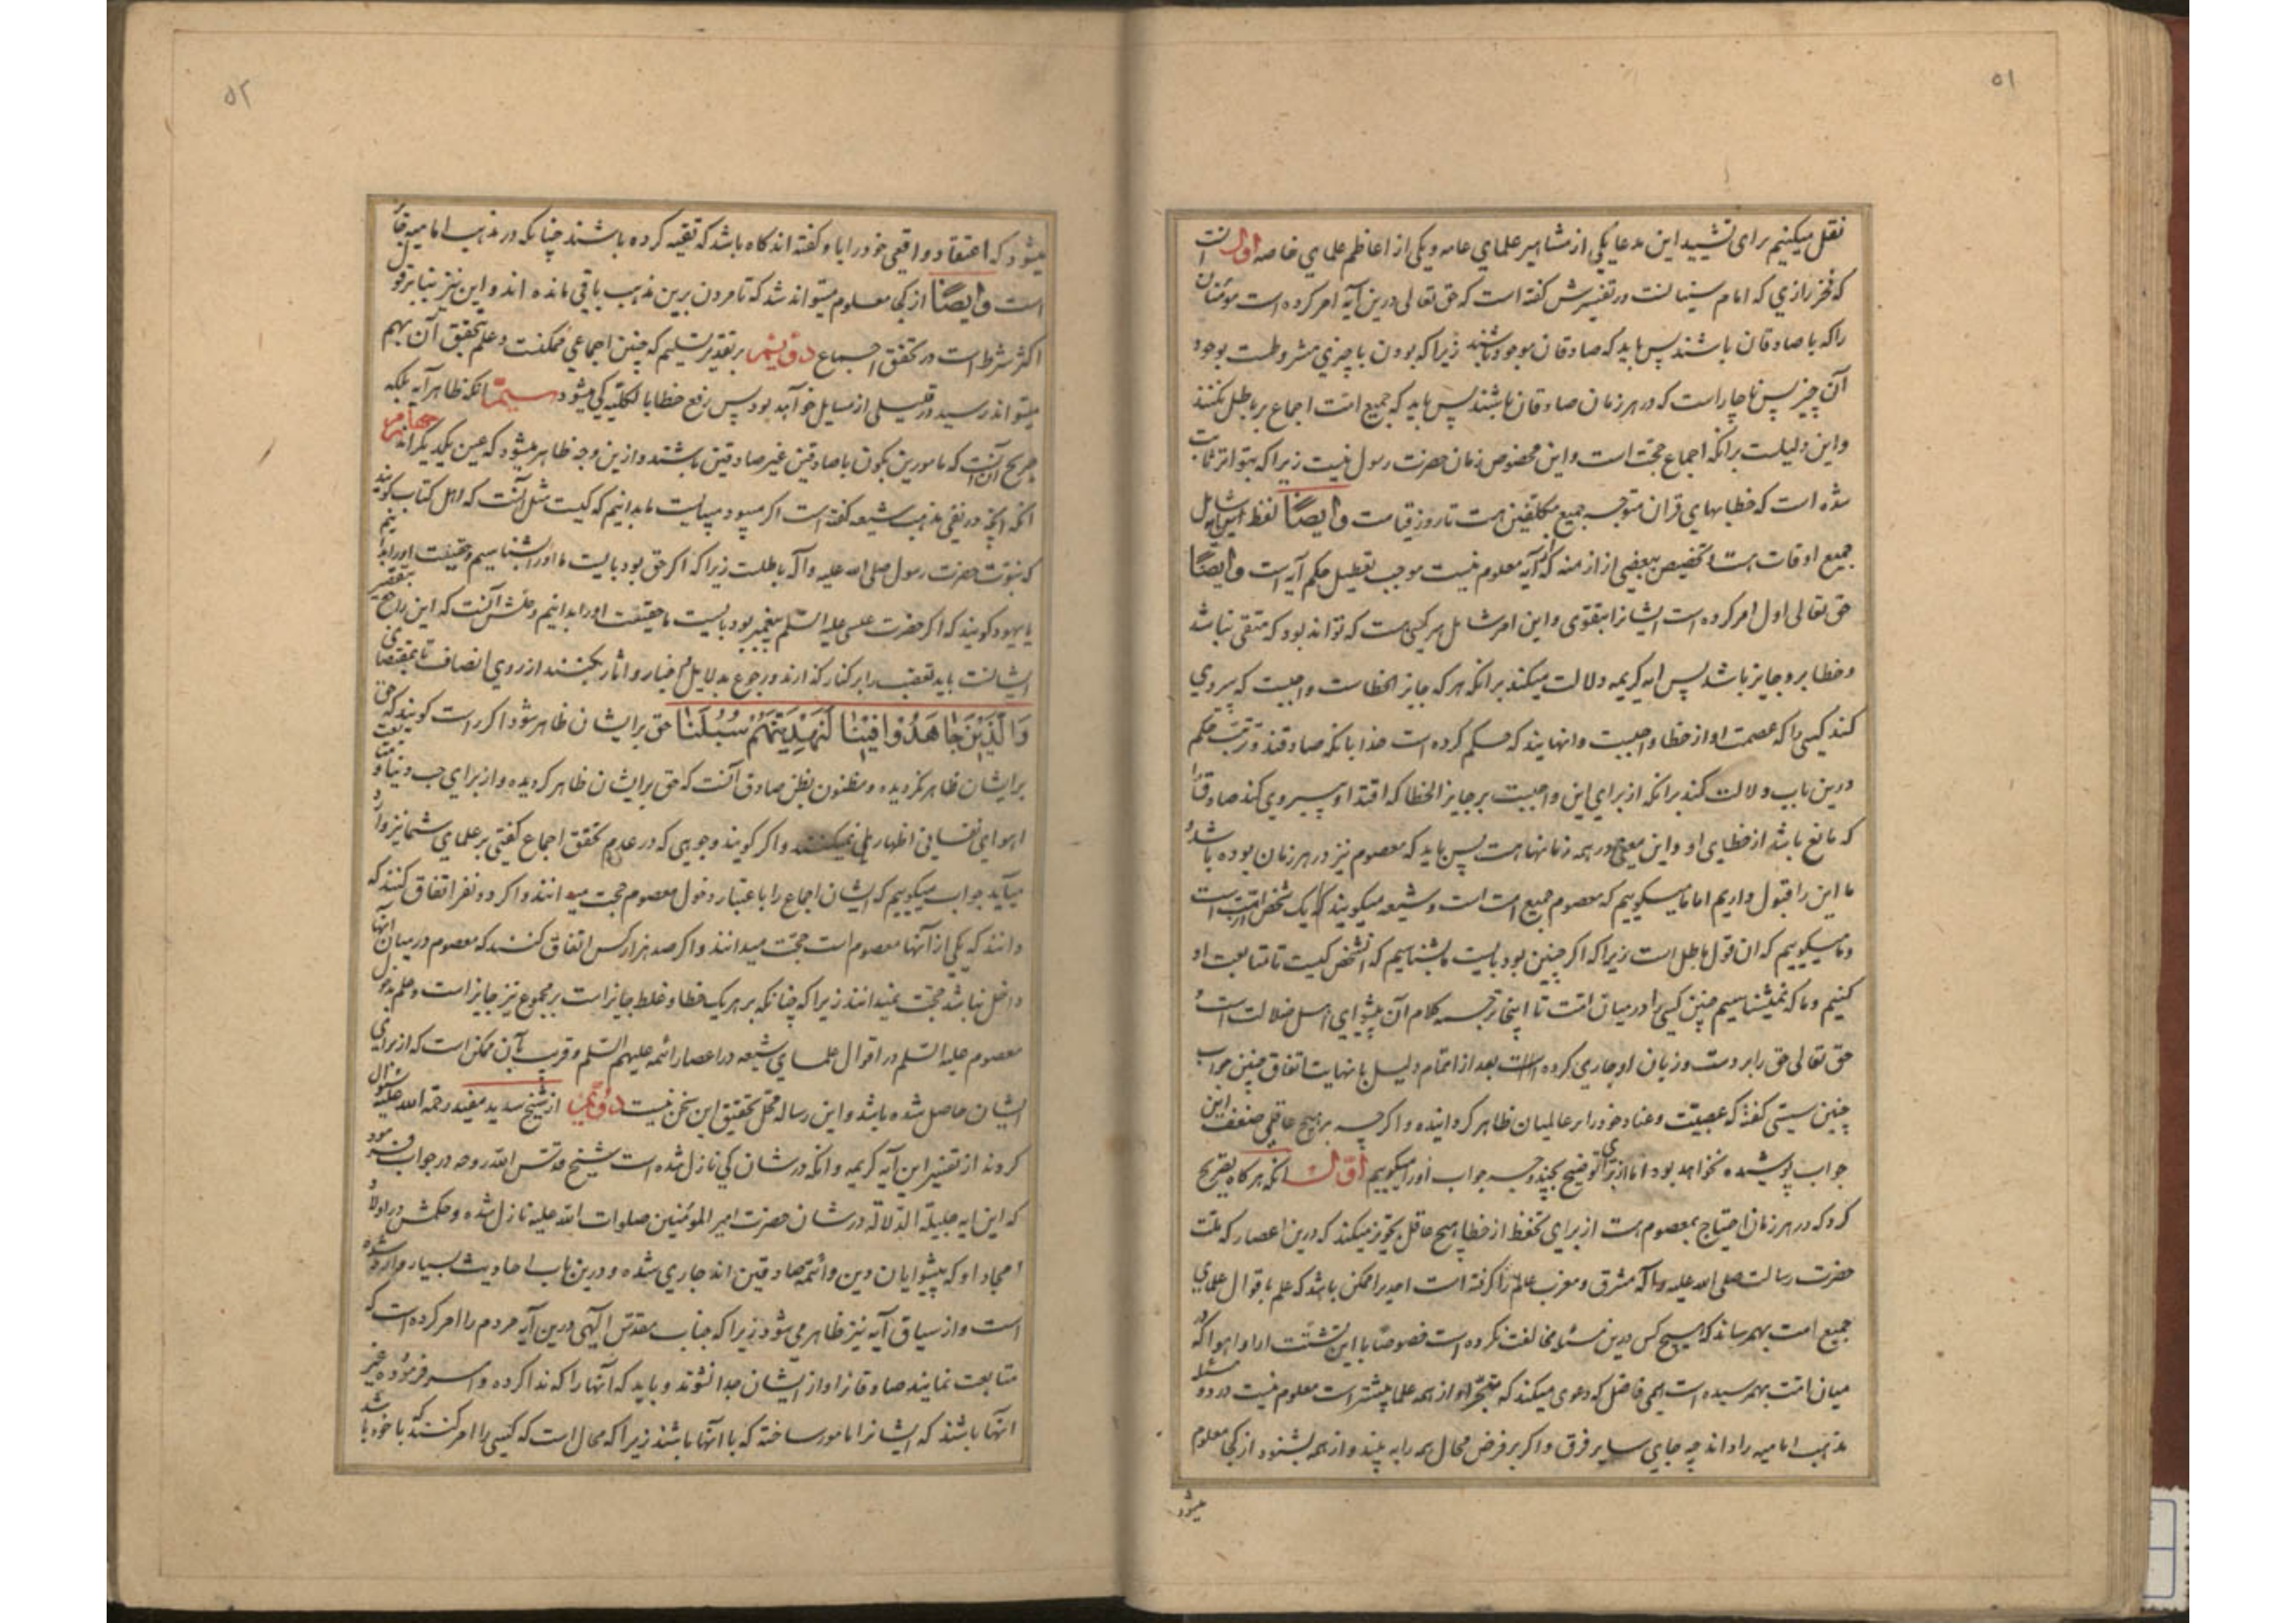 ۵۱
نقل میکنیم برای تشیید این مدعا یکی از مشاهیر علمای عامه و یکی از اعاظم علمای خاصه اول انست
که فخر رازی که امام سنیانست در تفسیرش گفته است که حق تعالی درین آیه امر کرده است مؤمنان
را که با صادقان باشند پس باید که صادقان موجود باشند زیرا که بودن با چیزی مشروطست بوجود
آن چیز پس ناچار است که در هر زمان صادقان باشند پس باید که جمیع امت اجماع بر باطل نکنند
و این دلیلست برانکه اجماع حجت است و این مخصوص زمان حضرت رسول نیست زیرا که بتواتر ثابت
شده است که خطابهای قران متوجه جمیع مکلفین هست تا روز قیامت و ایضًا لفظ این آیه شامل
جمیع اوقات هست و تخصیص ببعضی از ازمنه که از آیه معلوم نیست موجب تعطیل حکم آیه است و ایضًا
حق تعالی اول امر کرده است ایشانرا بتقوی و این امر شامل هر کسی هست که تواند بود که متقی نباشد
و خطا برو جایز باشد پس ایه کریمه دلالت میکند برانکه هر که جایز الخطاست واجبست که پیروی
کند کسی را که عصمت او از خطا واجبست و انهایند که حکم کرده است خدا بانکه صادقند و ترتب حکم
درین باب دلالت کند برانکه از برای این واجبست بر جایز الخطا که اقتدا و پیروی کند صادق را
که مانع باشد از خطای او و این معنی در همه زمانها هست پس باید که معصوم نیز در هر زمان بوده باشد و
ما این را قبول داریم اما ما میگوییم که معصوم جمیع امت است و شیعه میگویند که یک شخص از امت است
و ما میگوییم که ان قول باطل است زیرا که اگر چنین بود بایست ما بشناسیم که انشخص کیست تا متابعت او
کنیم و ما که نمیشناسیم چنین کسی را در میان امت تا اینجا ترجمه کلام آن پیشوای اهل ضلالت است و
حق تعالی حق را بر دست و زبان او جاری کرده است بعد از اتمام دلیل با نهایت اتفاق چنین جواب
چنین سستی گفته که عصبیّت و عناد خود را بر عالمیان ظاهر کردانیده و اگر چه بر هیچ عاقلی ضعف این
جواب پوشیده نخواهد بود اما از برای توضیح بچند وجه جواب او را میگوییم اول انکه هر گاه بتصریح
کرد که در هر زمان احتیاج بمعصوم هست از برای تحفظ از خطا هیچ عاقل تجویز میکند که درین اعصار که ملت
حضرت رسالت صلی الله علیه و آله مشرق و مغرب عالم را گرفته است احدیرا ممکن باشد که علم باقوال علمای
جمیع امت بهم رساند که هیچ کس درین مسئله مخالفت نکرده است خصوصا با این تشتت ارا و اهوا که در
میان امت بهم رسیده است همی فاضل که دعوی میکند که تبحر او از همه علما بیشتر است معلوم نیست در دو مسئله
مذهب امامیه را داند چه جای سایر فرق و اگر بر فرض محال همه را به بیند و از همه بشنود از کجا معلوم
میشود
۵۲
میشود که اعتقاد واقعی خود را یا و گفته اند گاه باشد که تقیه کرده باشند چنانکه در مذهب امامیه قائل
است و ایضًا از کجا معلوم میتواند شد که تا مردن برین مذهب باقی مانده اند و این نیز بنابر قول
اکثر شرط است در تحقق اجماع دویم بر تقدیر تسلیم که چنین اجماعی ممکنست و علم بتحقق آن بهم
میتواند رسید در قلیلی از مسایل خواهد بود پس رفع خطا بالکلیه کی میشود سیم انکه ظاهر آیه بلکه
صریح آن آنست که مامورین بکون با صادقین غیر صادقین باشند و ازین وجه ظاهر میشود که عین یکدیگراند چهارم
انکه انچه در نفی مذهب شیعه گفته است اگر میبود میبایست ما بدانیم که کیست مثل آنست که اهل کتاب گویند
که نبوت حضرت رسول صلی الله علیه و آله باطلست زیرا که اگر حق بود بایست ما او را بشناسیم و حقیقت او را بدانیم
یا یهود گویند که اگر حضرت عیسی علیه السلم پیغمبر بود بایست ما حقیقت او را بدانیم و حلش آنست که این راجع بتقصیر
ایشانست باید تعصب را بر کنار گذارند و رجوع بدلایل و اخبار و اثار بکنند از روی انصاف تا بمقتضای
وَالَّذِیْنَ جَاهَدُوْا فِیْنَا لَنَهْدِیَنَّهُمْ سُبُلَنَا حق بر ایشان ظاهر شود اگر راست گویند که حق
بر ایشان ظاهر نکردیده و مظنون بظن صادق آنست که حق بر ایشان ظاهر کردیده و از برای حب دنیا و متابعت
اهوای نفسانی اظهار نمیکنند و اگر گویند وجوهی که در عدم تحقق اجماع گفتی بر علمای شما نیز وارد
میآید جواب میگوییم که ایشان اجماع را باعتبار دخول معصوم حجت میدانند و اگر دو نفر اتفاق کنند که
دانند که یکی از آنها معصوم است حجت میدانند و اگر صد هزار کس اتفاق کنند که معصوم در میان انها
داخل نباشد حجت نمیدانند زیرا که چنانکه بر هر یک خطا و غلط جایز است بر مجموع نیز جایز است و علم بدخول
معصوم علیه السلم در اقوال علمای شیعه در اعصار ائمه علیهم السلم و قریب بآن ممکن است که از برای
ایشان حاصل شده باشد و این رساله محل تحقیق این سخن نیست دویم از شیخ سدید مفید رحمة الله علیه سئوال
کردند از تفسیر این آیه کریمه و انکه در شان کی نازل شده است شیخ قدس الله روحه در جواب فرمود
که این ایه جلیلة الدلاله در شان حضرت امیر المؤمنین صلوات الله علیه نازل شده و حکمش در اولاد
امجاد او که پیشوایان دین و ائمه صادقین اند جاری شده و درین باب احادیث بسیار وارد شده
است و از سیاق آیه نیز ظاهر می شود زیرا که جناب مقدس الهی درین آیه مردم را امر کرده است که
متابعت نمایند صادقانرا و از ایشان جدا نشوند و باید که آنها را که ندا کرده و امر فرموده غیر
انها باشند که ایشانرا مامور ساخته که با آنها باشند زیرا که محال است که کسی را امر کنند که با خود باشد